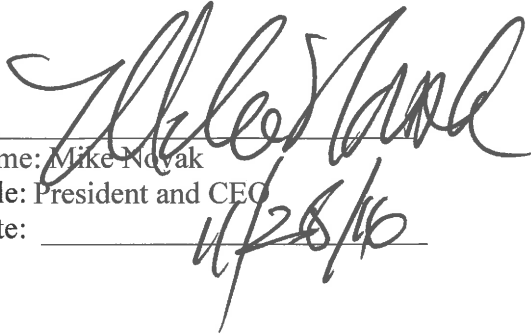 Mike Novak
me: Mike Novak
le: President and CEO
te: 11/28/16